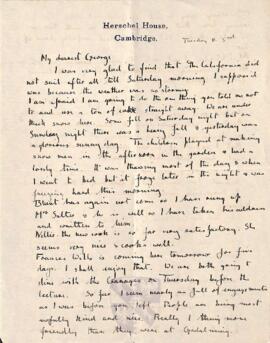 Herschel House,
Cambridge.
Tuesday
My dearest George
I was very glad to find that the California did
not sail after all till Saturday morning. I suppose it
was because the weather was so stormy.
I am afraid I am going to do the one thing you told me not
to and use a ton of straight away. We are under
thick snow here. Some fell on Saturday night but on
Sunday night there was a heavy fall & yesterday was
a glorious sunny day. The children played at making
snow men in the afternoon in the garden & had a
lovely time. It was thawing most of the day & when
I went to bed but it froze later in the night & was
freezing hard this morning.
has again not come so I have rung up
Mrs & he is well so I have taken his address
and written to him.
the new cook is so far very satisfactory. She
seems very nice & cooks well.
Frances Wills is coming here tomorrow for five
days. I shall enjoy that. We are both going to
dine with the on Thursday before the
lecture. So far I seem nearly as full of engagements
as I was before you left. People are being most
awfully kind and nice. Really I think more
friendly than they were at Godalming.